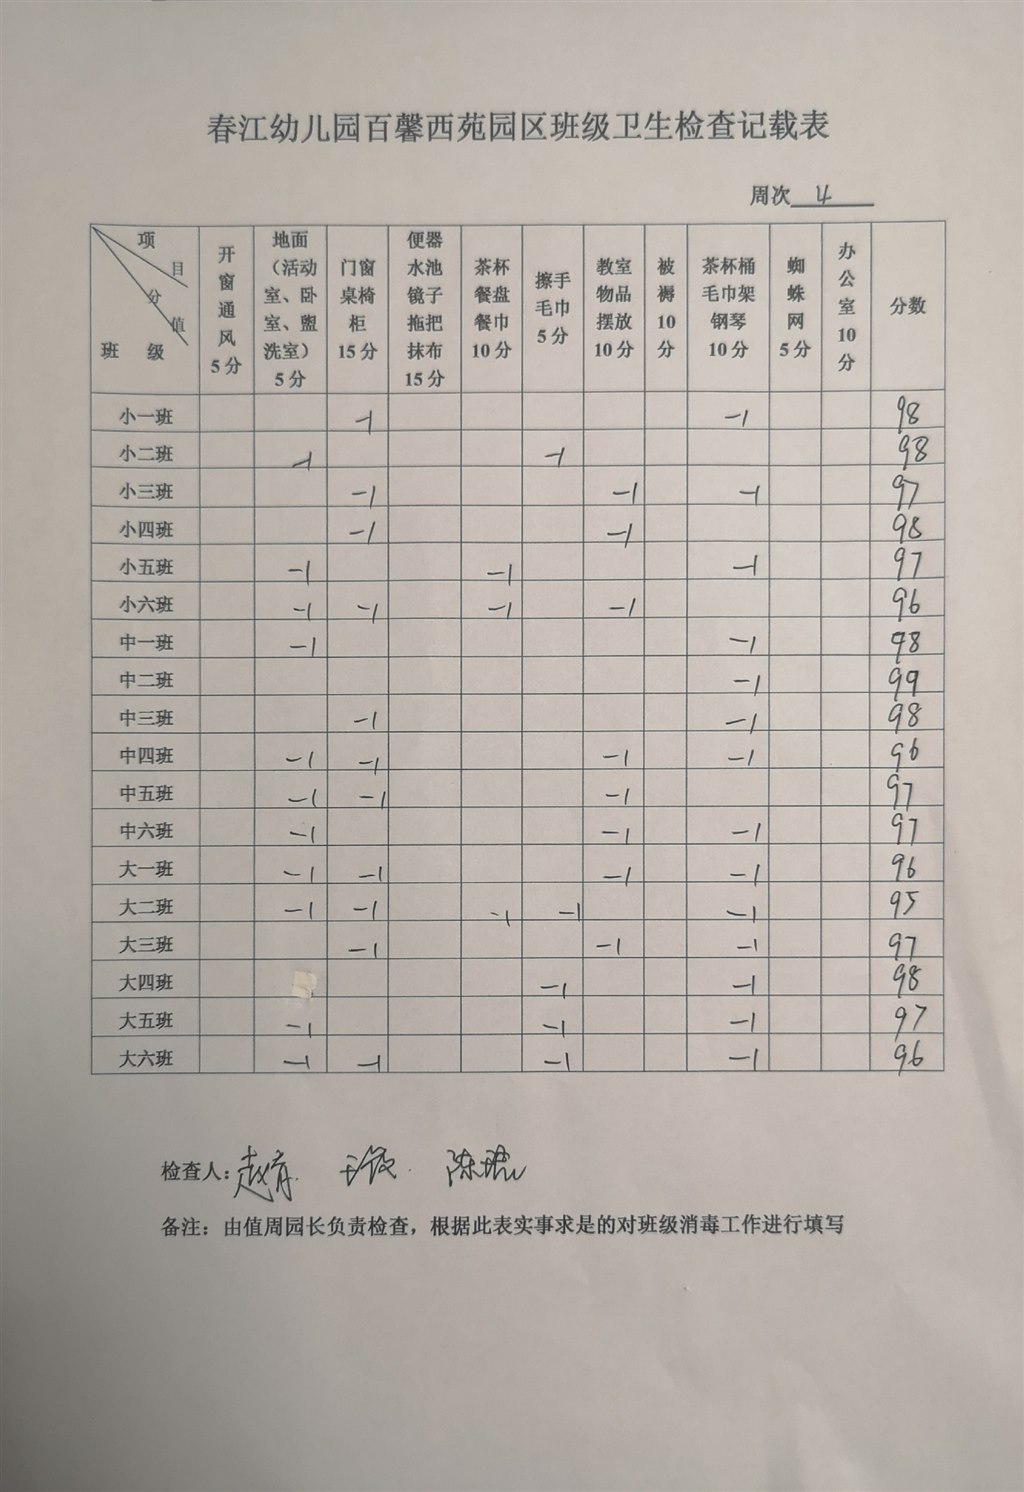 春江幼儿园百馨西苑园区班级卫生检查记载表
周次 4
项目 分值 班级 开窗通风5分 地面（活动室、卧室、盥洗室）5分 门窗桌椅柜15分 便器水池镜子拖把抹布15分 茶杯餐盘餐巾10分 擦手毛巾5分 教室物品摆放10分 被褥10分 茶杯桶毛巾架钢琴10分 蜘蛛网5分 办公室10分 分数
小一班 -1 -1 98
小二班 -1 -1 98
小三班 -1 -1 -1 97
小四班 -1 -1 98
小五班 -1 -1 -1 97
小六班 -1 -1 -1 -1 96
中一班 -1 -1 98
中二班 -1 99
中三班 -1 -1 98
中四班 -1 -1 -1 -1 96
中五班 -1 -1 -1 97
中六班 -1 -1 -1 97
大一班 -1 -1 -1 -1 96
大二班 -1 -1 -1 -1 -1 95
大三班 -1 -1 -1 97
大四班 -1 -1 98
大五班 -1 -1 -1 97
大六班 -1 -1 -1 -1 96
检查人：
备注：由值周园长负责检查，根据此表实事求是的对班级消毒工作进行填写